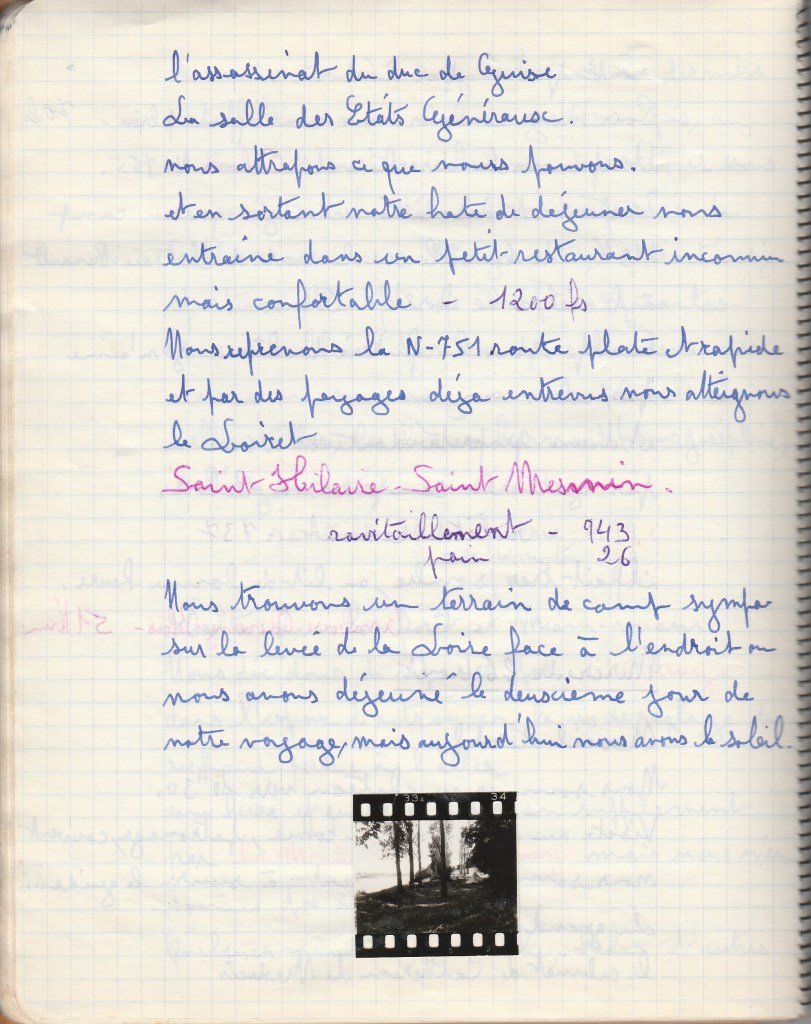 l'assassinat du duc de Guise
La salle des Etáts Généraux.
nous attrapons ce que nous pouvons.
et en sortant notre hate de déjeuner nous
entraine dans un petit restaurant inconnu
mais confortable - 1200 fs
Nous reprenons la N-751 route plate & rapide
et par des paysages déja entrevus nous atteignons
le Loiret
Saint Hilaire - Saint Mesmin.
ravitaillement - 943
pain 26
Nous trouvons un terrain de camp sympa
sur la levée de la Loire face à l'endroit ou
nous avons déjeuné le deuxième jour de
notre voyage, mais aujourd'hui nous avons le soleil.
33 34